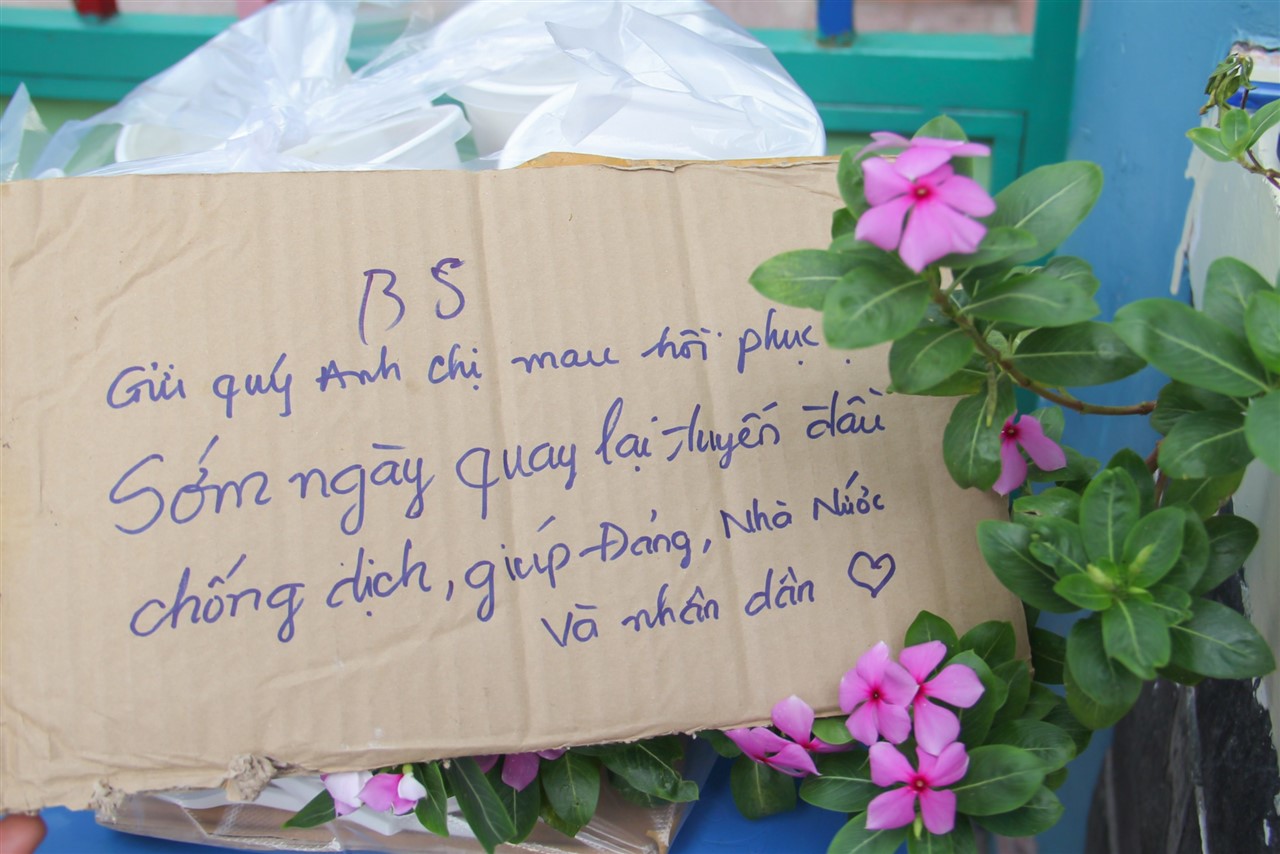 BS
Gửi quý Anh chị mau hồi phục
Sớm ngày quay lại tuyến đầu
chống dịch, giúp Đảng, Nhà Nước
Và nhân dân ♡